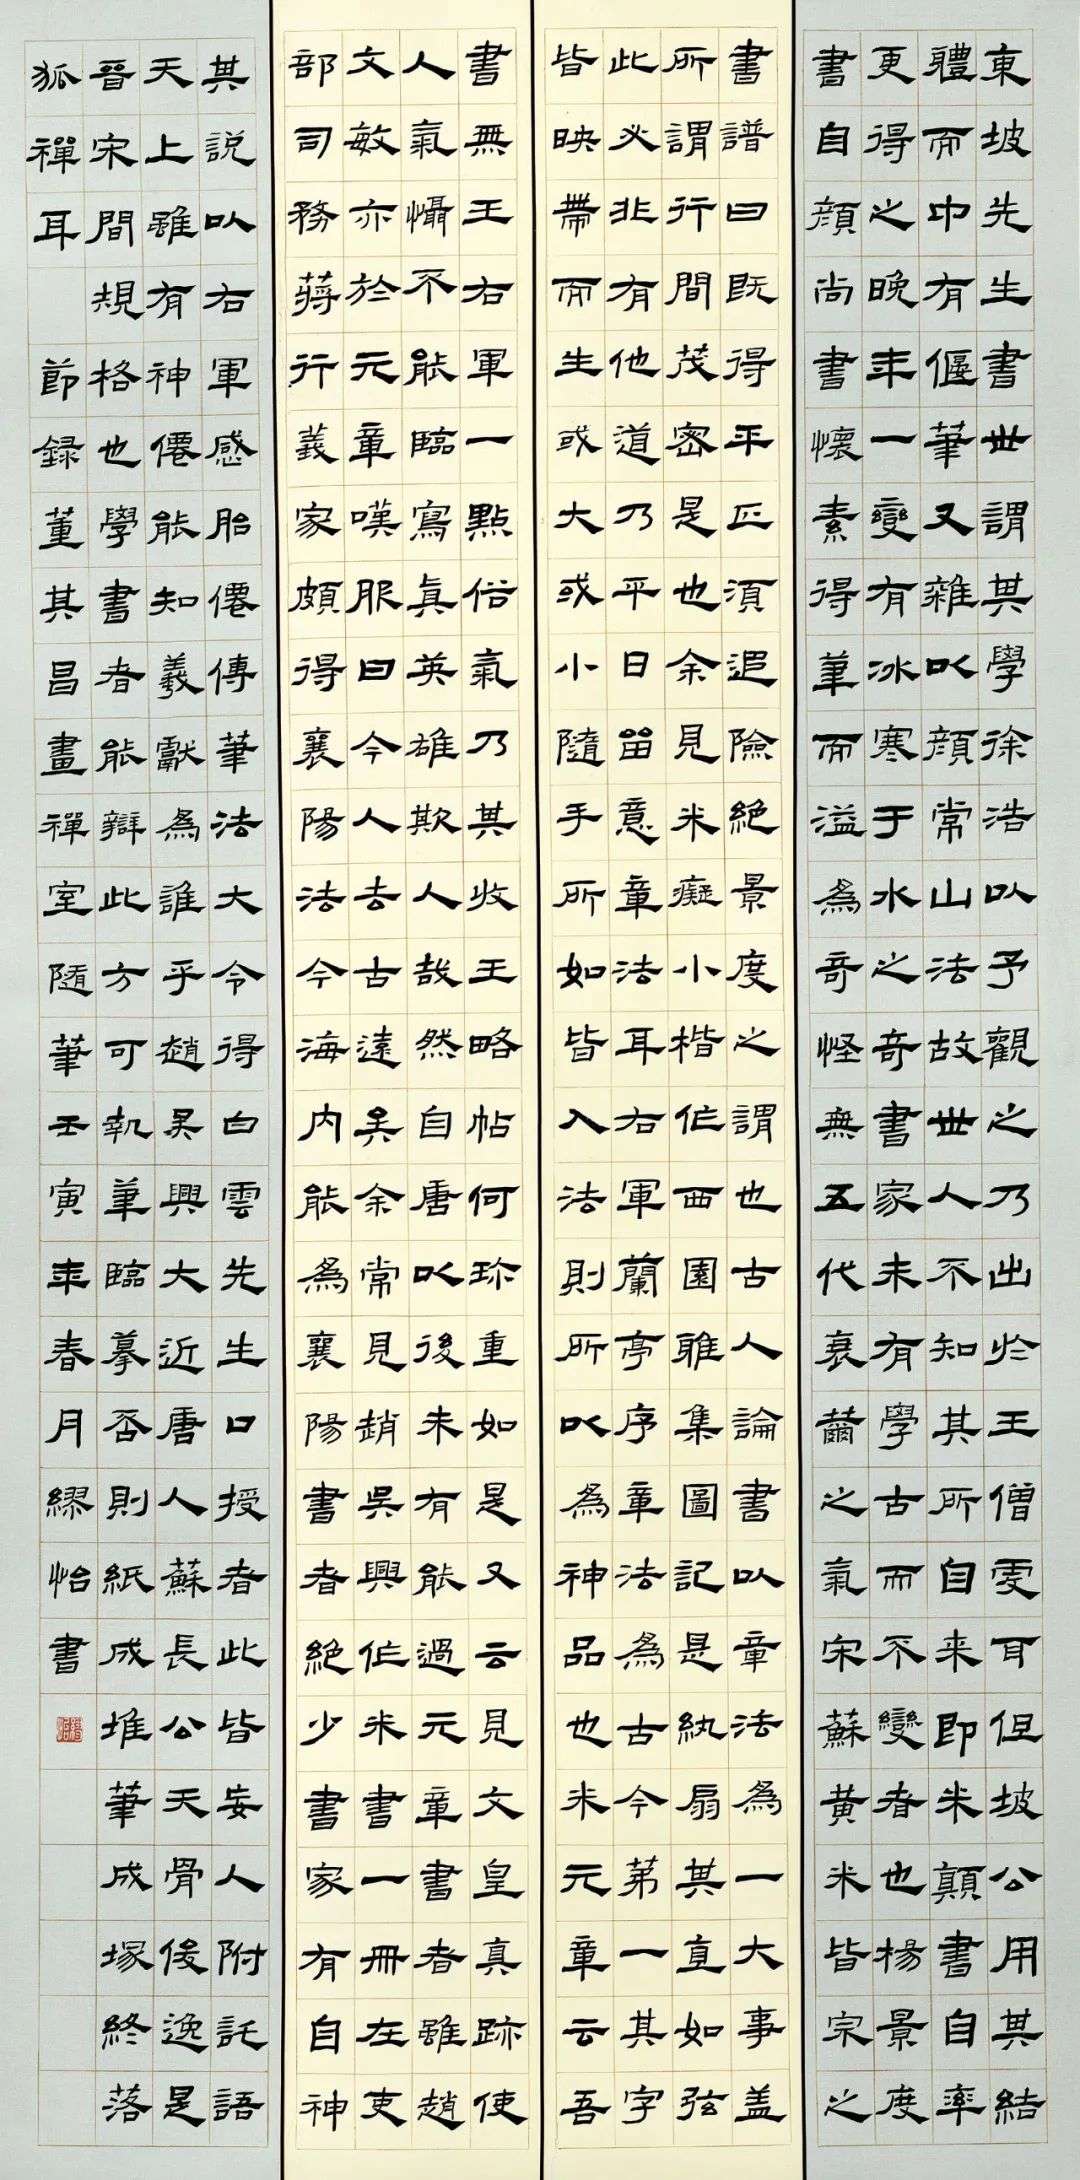 東坡先生書世謂其學徐浩以予觀之乃出於王僧虔耳但坡公用其結
體而中有偃筆又雜以顏常山法故世人不知其所自来即米顛書自率
更得之晚年一變有冰寒于水之奇書家未有學古而不變者也楊景度
書自顏尚書懷素得筆而溢為奇怪無五代衰薾之氣宋蘇黃米皆宗之
書譜曰既得平正須追險絶景度之謂也古人論書以章法為一大事盖
所謂行間茂密是也余見米癡小楷作西園雅集圖記是紈扇其直如弦
此必非有他道乃平日留意章法耳右軍蘭亭序章法為古今第一其字
皆映帶而生或大或小隨手所如皆入法則所以為神品也米元章云吾
書無王右軍一點俗氣乃其收王略帖何珍重如是又云見文皇真跡使
人氣懾不能臨寫真英雄欺人哉然自唐以後未有能過元章書者雖趙
文敏亦於元章嘆服曰今人去古遠矣余常見趙吳興作米書一冊在吏
部司務蔣行義家頗得襄陽法今海内能為襄陽書者絶少書家有自神
其説以右軍感胎僊傳筆法大令得白雲先生口授者此皆妄人附託語
天上雖有神僊能知羲獻為誰乎趙吳興大近唐人蘇長公天骨俊逸是
晉宋間規格也學書者能辯此方可執筆臨摹否則紙成堆筆成塚終落
狐禪耳 節録董其昌畫禪室隨筆壬寅年春月繆怡書